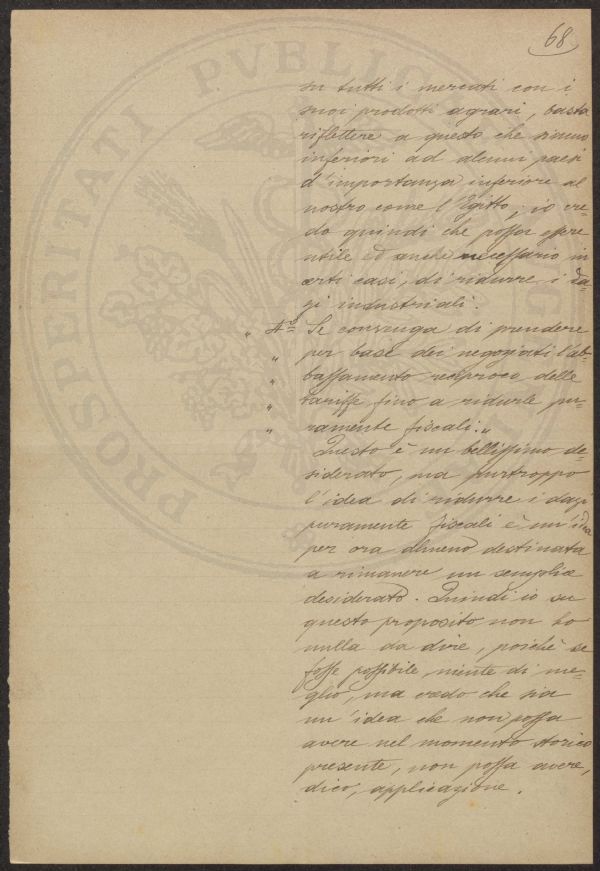 68
su tutti i mercati con i
suoi prodotti agrari, basta
riflettere a questo che siamo
inferiori ad alcuni paesi
d'importanza inferiore al
nostro come l'Egitto; io cre-
do quindi che possa essere
utile ed anche necessario in
certi casi, di ridurre i da-
zi industriali.
" 4º Se convenga di prendere
" per base dei negoziati l'ab-
" bassamento reciproco delle
" tariffe fino a ridurle pu-
" ramente fiscali."
Questo è un bellissimo de-
siderato, ma purtroppo
l'idea di ridurre i dazi
puramente fiscali è un'idea
per ora almeno destinata
a rimanere un semplice
desiderato. Quindi io su
questo proposito non ho
nulla da dire, poichè se
fosse possibile, niente di me-
glio, ma credo che sia
un'idea che non possa
avere nel momento storico
presente, non possa avere,
dico, applicazione.
PROSPERITATI PVBLICAE